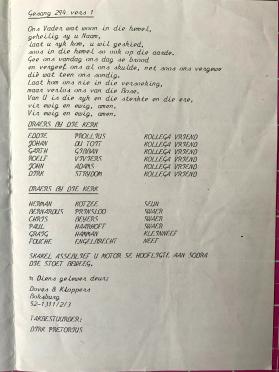 Gesang 294 vers 1
Ons Vader wat woon in die hemel,
geheilig sy u Naam,
Laat u ryk kom, u wil geskied,
soos in die hemel so ook op die aarde.
Gee ons vandag ons dag se brood
en vergeef ons al ons skulde, net soos ons vergewe
die wat teen ons sondig.
Laat kom ons nie in die versoeking,
maar verlos ons van die Bose.
Van U is die ryk en die sterkte en die ere,
vir ewig en ewig, amen.
Vir ewig en ewig, amen.
DRAERS BY DIE KERK
EDDIE PROLLIUS KOLLEGA VRIEND
JOHAN DU TOIT KOLLEGA VRIEND
GARTH KOLLEGA VRIEND
ROELF VIVIERS KOLLEGA VRIEND
JOHN ADAMS KOLLEGA VRIEND
DIRK STRYDOM KOLLEGA VRIEND
DRAERS BY DIE KERK
HERMAN KOTZEE SEUN
BERNARDUS PRINSLOO SWAER
CHRIS BEYERS SWAER
PAUL HAARHOFF SWAER
CRAIG HAMMAN KLEINNEEF
FOUCHE ENGELBRECHT NEEF
SKAKEL ASSEBLIEF U MOTOR SE HOOFLIGTE AAN SODRA
DIE STOET BEWEEG.
'n Diens gelewer deur:
Doves & Kloppers
Boksburg
52-1311/2/3
TAKBESTUURDER:
DIRK PRETORIUS